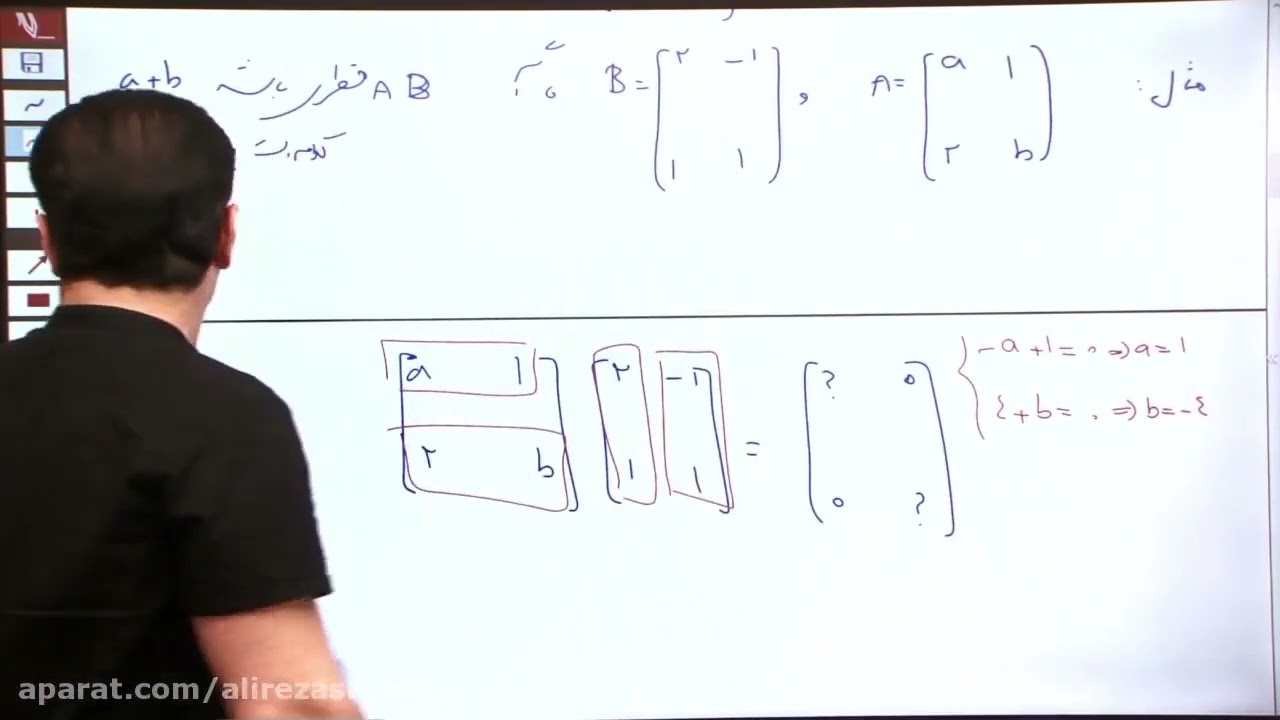 مثل: A = [a 1 ; ۲ b] , B = [۲ -1 ; 1 1] AB قطری باشد a+b
کدام است
[a 1 ; ۲ b] [۲ -1 ; 1 1] = [? 0 ; 0 ?]
-a+1=0 ⇒ a=1
۴+b=0 ⇒ b=-۴
aparat.com/alirezas